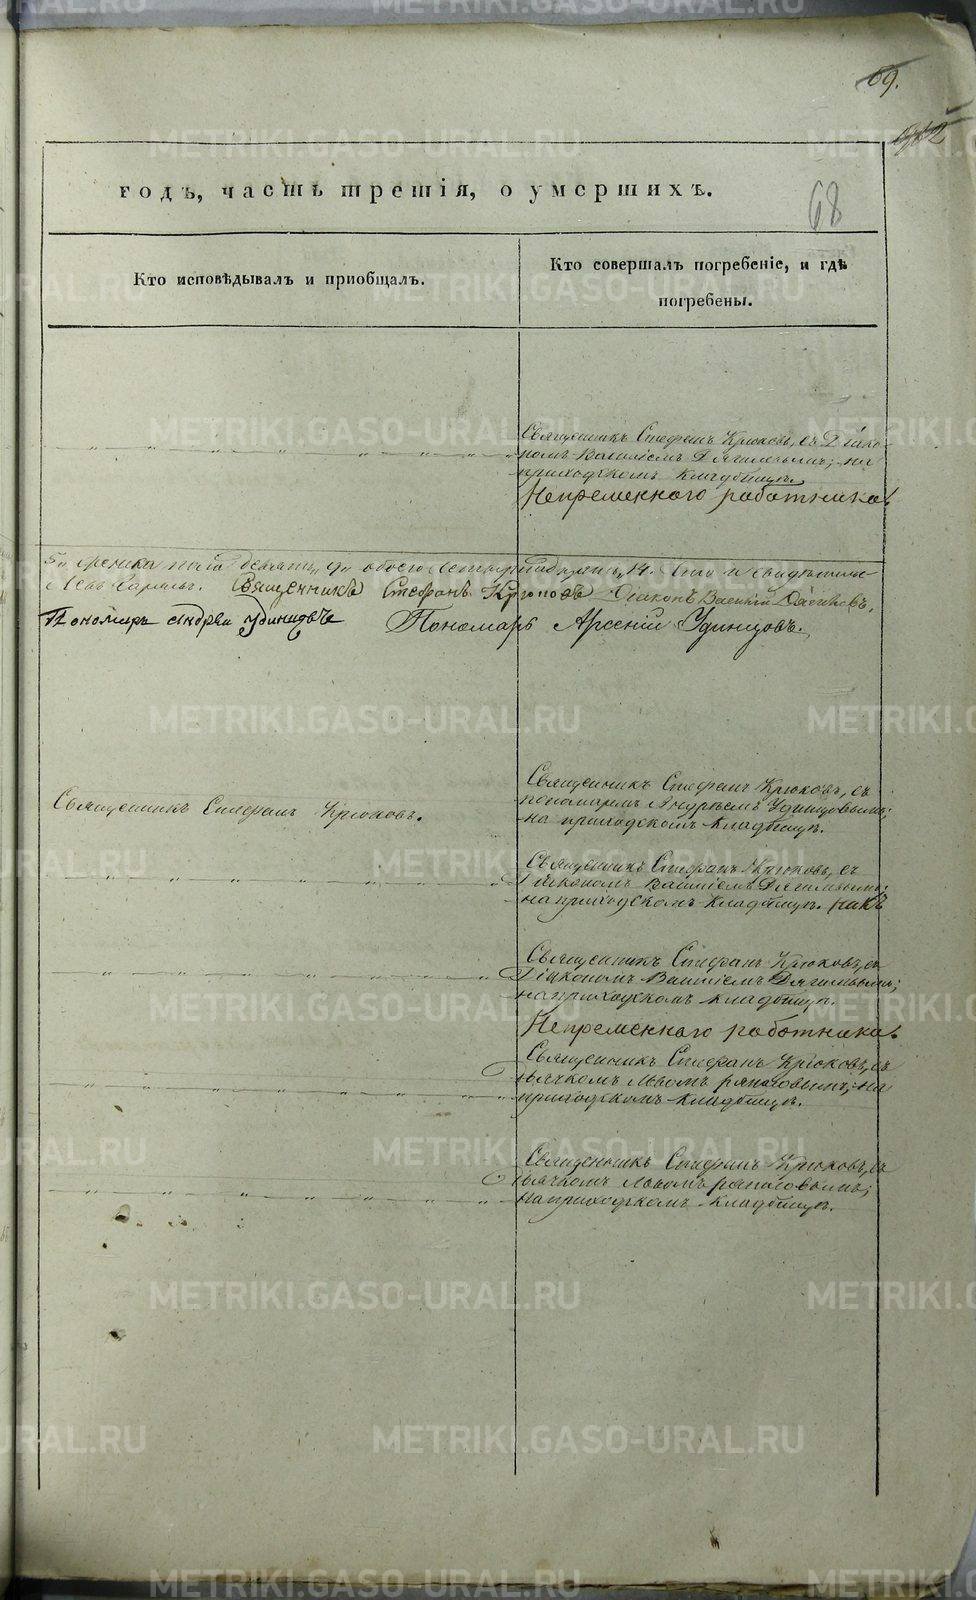 69.
годъ, часть третія, о умершихъ.
68
Кто исповѣдывалъ и пріобщалъ.
Кто совершалъ погребеніе, и гдѣ
погребены.
Священникъ Стефанъ Крюковъ, съ Діако-
номъ Василіемъ Дягилевымъ; на
приходскомъ кладбищѣ.
Непременнаго работника.
женска пола девять, 9. обоего четырнадцать, 14.
Священникъ Стефанъ Крюковъ Діаконъ Василій
Пономарь Андрей Удинцовъ Пономарь Арсеній Удинцовъ.
Священникъ Стефанъ Крюковъ.
Священникъ Стефанъ Крюковъ, съ
пономаремъ Андреемъ Удинцовымъ;
на приходскомъ кладбищѣ.
Священникъ Стефанъ Крюковъ, съ
Діякономъ Василіемъ Дягилевымъ;
на приходскомъ кладбищѣ.
Священникъ Стефанъ Крюковъ, съ
Діякономъ Василіемъ Дягилевымъ;
на приходскомъ кладбищѣ.
Непременнаго работника.
Священникъ Стефанъ Крюковъ, съ
Дьячкомъ Львомъ на
приходскомъ кладбищѣ.
Священникъ Стефанъ Крюковъ, съ
Дьячкомъ Львомъ
на приходскомъ кладбищѣ.
METRIKI.GASO-URAL.RU